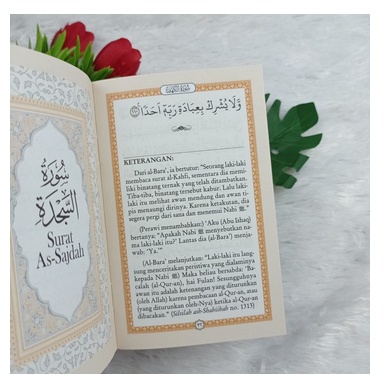 سُورَةُ
السَّجْدَةِ
Surat
As-Sajdah
سُورَةُ الْكَهْفِ
وَلَا يُشْرِكْ بِعِبَادَةِ رَبِّهٖٓ اَحَدًا ࣖ ﴿١١٠﴾
KETERANGAN:
Dari al-Bara', ia bertutur: "Seorang laki-laki
membaca surat al-Kahfi, sementara dia memi-
liki binatang ternak yang telah ditambatkan.
Tiba-tiba, binatang tersebut kabur. Lalu laki-
laki itu melihat awan mendung dan awan ti-
pis menaungi dirinya. Karena ketakutan, dia
segera pergi dari sana dan menemui Nabi ﷺ."
(Perawi menambahkan): 'Aku (Abu Ishaq)
bertanya: "Apakah Nabi ﷺ menyebutkan na-
ma laki-laki itu?' Lantas dia (al-Bara') menja-
wab: 'Ya.'"
(Al-Bara') melanjutkan: "Laki-laki itu lang-
sung menceritakan peristiwa yang dialaminya
kepada Nabi ﷺ) Maka beliau bersabda: 'Ba-
calah (al-Qur-an), hai Fulan! Sesungguhnya
awan itu adalah ketenangan yang diturunkan
(oleh Allah) karena pembacaan al-Qur-an, atau
(yang diturunkan oleh-Nya) ketika al-Qur-an
diturunkan." (Silsilah ash-Shahiihah no. 1313)